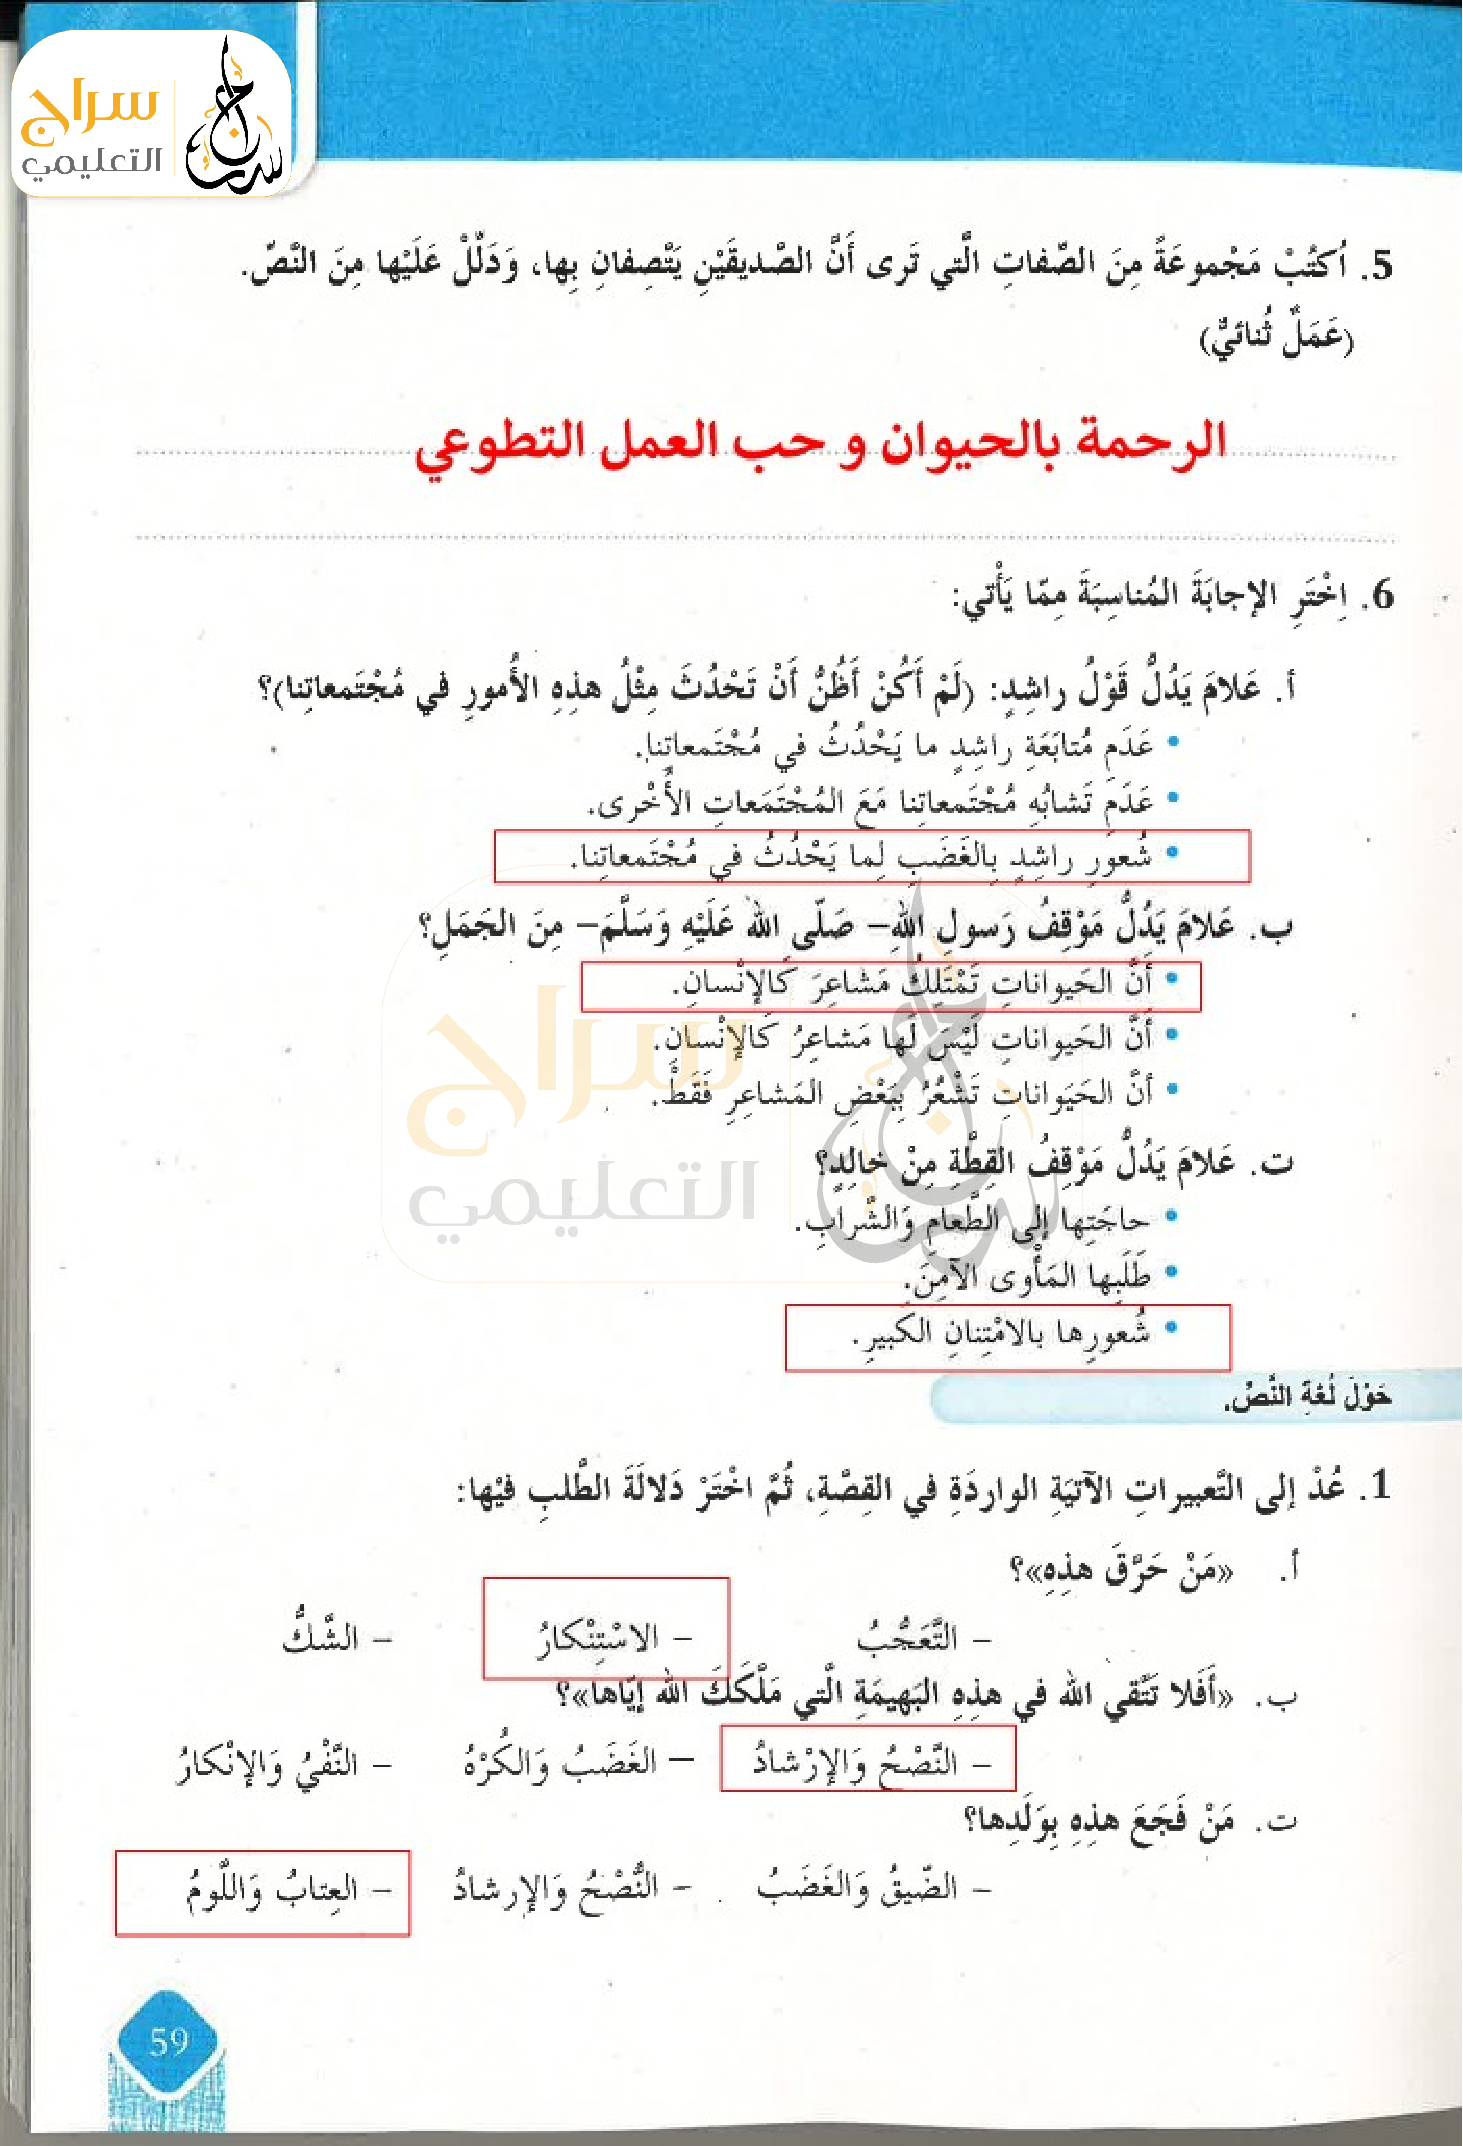 سراج
التعليمي
5. اُكْتُبْ مَجْموعَةً مِنَ الصِّفاتِ الَّتي تَرى أَنَّ الصَّديقَيْنِ يَتَّصِفانِ بِها، وَدَلِّلْ عَلَيْها مِنَ النَّصِّ.
(عَمَلٌ ثُنائيٌّ)
الرحمة بالحيوان و حب العمل التطوعي
6. اِخْتَرِ الإجابَةَ المُناسِبَةَ مِمّا يَأْتي:
أ. عَلامَ يَدُلُّ قَوْلُ راشِدٍ: (لَمْ أَكُنْ أَظُنُّ أَنْ تَحْدُثَ مِثْلُ هذِهِ الأُمورِ في مُجْتَمعاتِنا)؟
• عَدَمِ مُتابَعَةِ راشِدٍ ما يَحْدُثُ في مُجْتَمعاتِنا.
• عَدَمِ تَشابُهِ مُجْتَمعاتِنا مَعَ المُجْتَمَعاتِ الأُخْرى.
• شُعورِ راشِدٍ بِالغَضَبِ لِما يَحْدُثُ في مُجْتَمعاتِنا.
ب. عَلامَ يَدُلُّ مَوْقِفُ رَسولِ اللهِ– صَلّى اللهُ عَلَيْهِ وَسَلَّمَ– مِنَ الجَمَلِ؟
• أَنَّ الحَيواناتِ تَمْتَلِكُ مَشاعِرَ كَالإنْسانِ.
• أَنَّ الحَيواناتِ لَيْسَ لَها مَشاعِرُ كَالإنْسانِ.
• أنَّ الحَيَواناتِ تَشْعُرُ بِبَعْضِ المَشاعِرِ فَقَطْ.
ت. عَلامَ يَدُلُّ مَوْقِفُ القِطَّةِ مِنْ خالِدٍ؟
• حاجَتِها إلى الطَّعامِ وَالشَّرابِ.
• طَلَبِها المَأْوى الآمِنَ.
• شُعورِها بالامْتِنانِ الكَبيرِ.
سراج
التعليمي
حَوْلَ لُغَةِ النَّصِّ.
1. عُدْ إلى التَّعبيراتِ الآتيَةِ الوارِدَةِ في القِصَّةِ، ثُمَّ اخْتَرْ دَلالَةَ الطَّلبِ فيْها:
أ. «مَنْ حَرَّقَ هذِهِ»؟
– التَّعَجُّبُ – الاسْتِنْكارُ – الشَّكُّ
ب. «أَفَلا تَتَّقي الله في هذِهِ البَهيمَةِ الَّتي مَلَّكَكَ الله إيّاها»؟
– النَّصْحُ وَالإرْشادُ – الغَضَبُ وَالكُرْهُ – النَّفْيُ وَالإنْكارُ
ت. مَنْ فَجَعَ هذِهِ بِوَلَدِها؟
– الضّيقُ وَالغَضَبُ – النُّصْحُ وَالإرشادُ – العِتابُ وَاللَّومُ
59